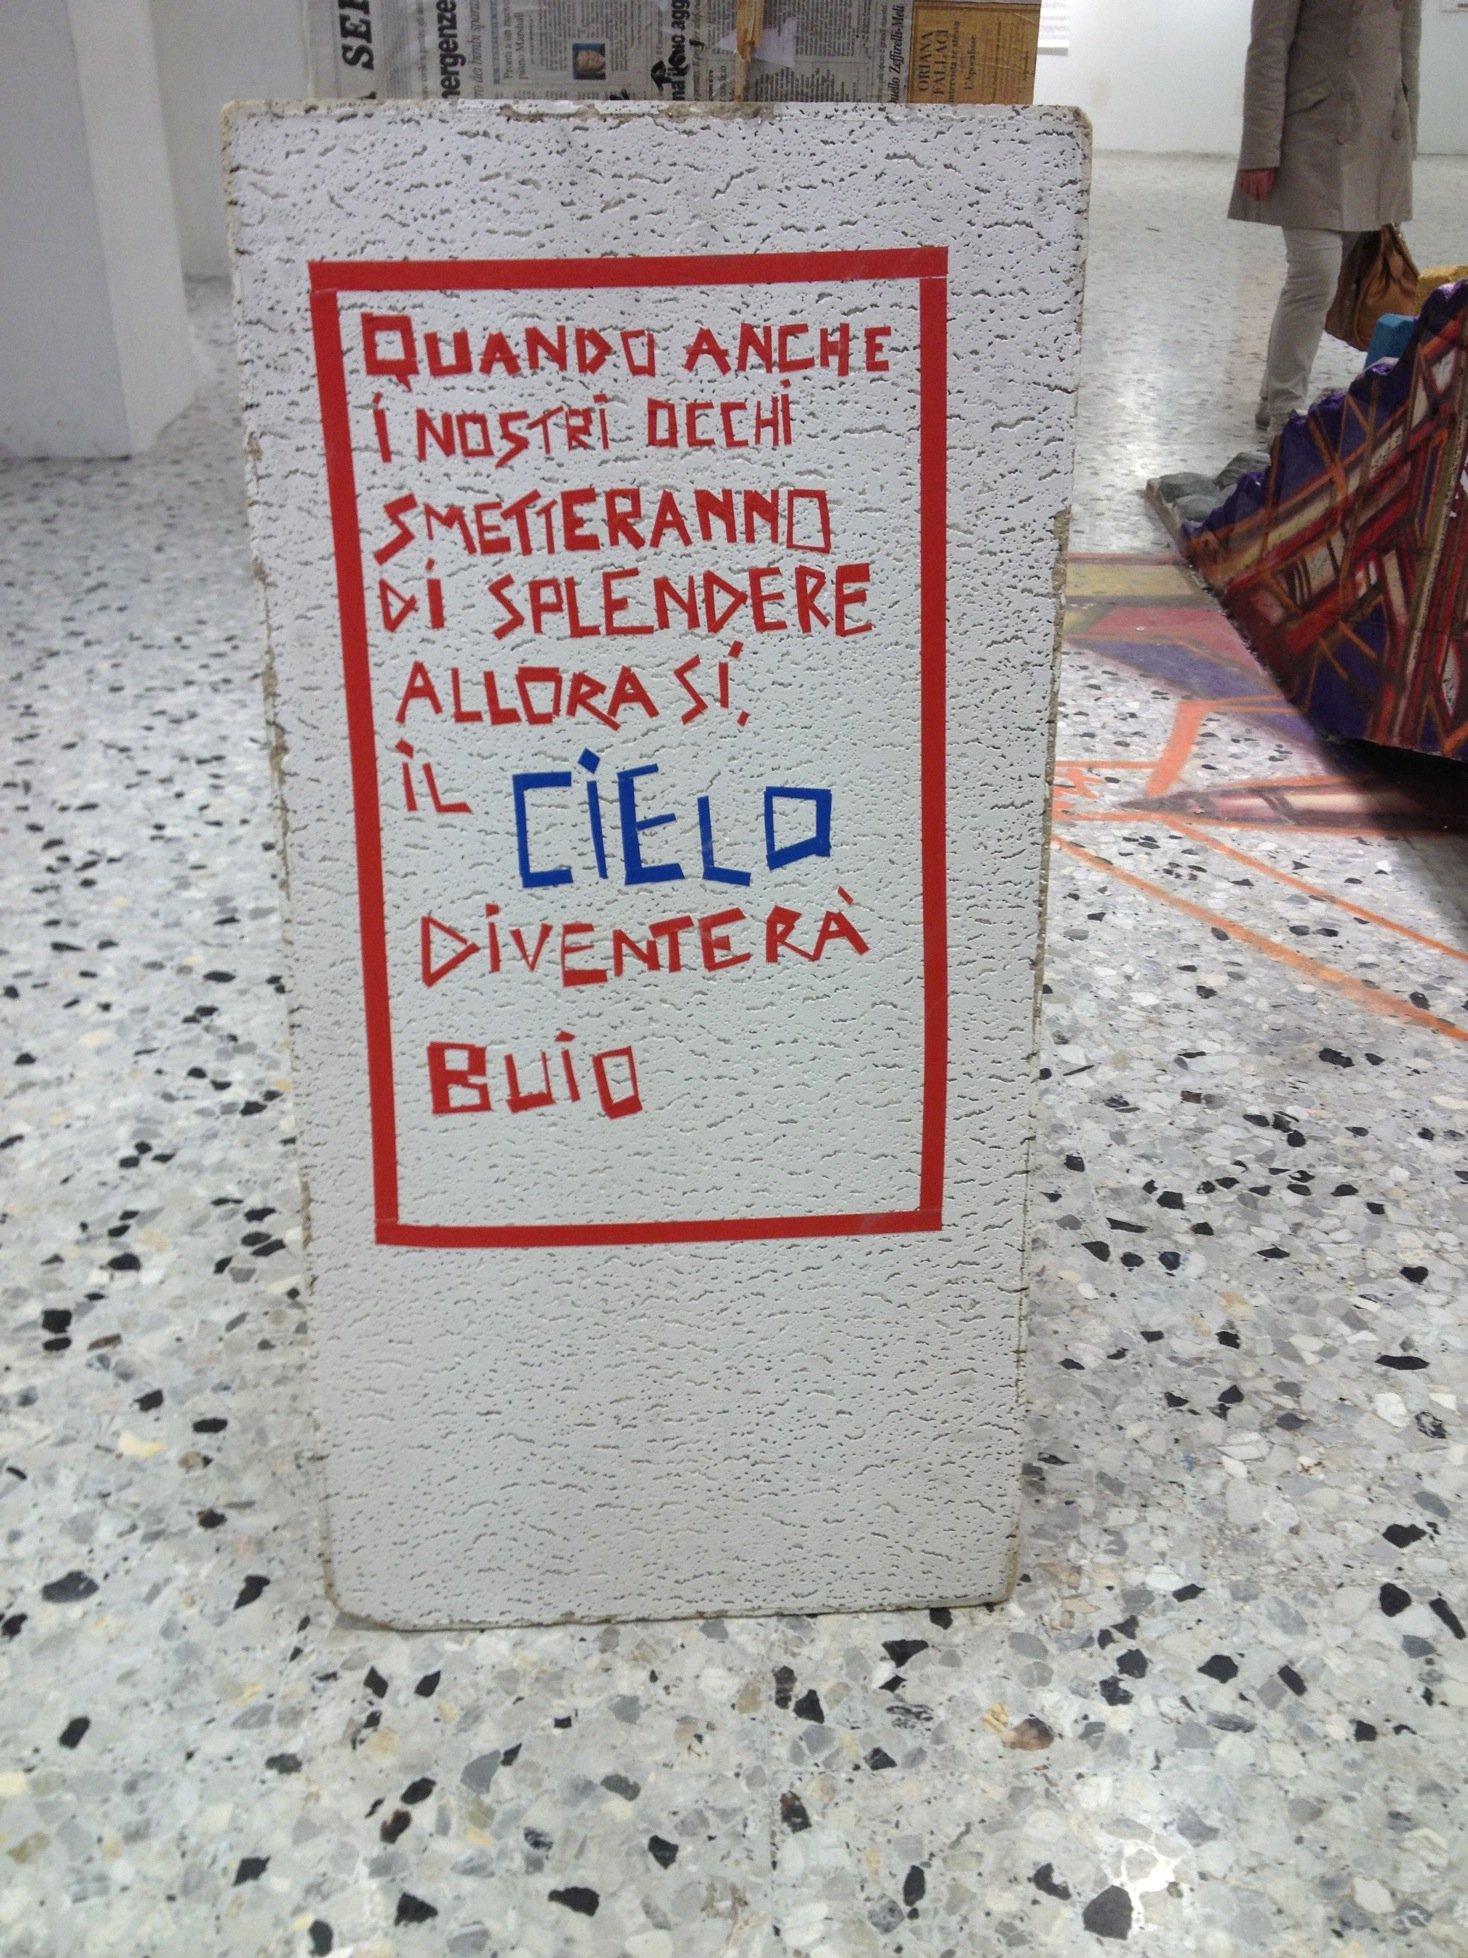 A SER
mergenze
ORIANA
FALLACI
L'Apocalisse
QUANDO ANCHE
I NOSTRI OCCHI
SMETTERANNO
DI SPLENDERE
ALLORA SÍ,
IL CIELO
DIVENTERÀ
BUIO